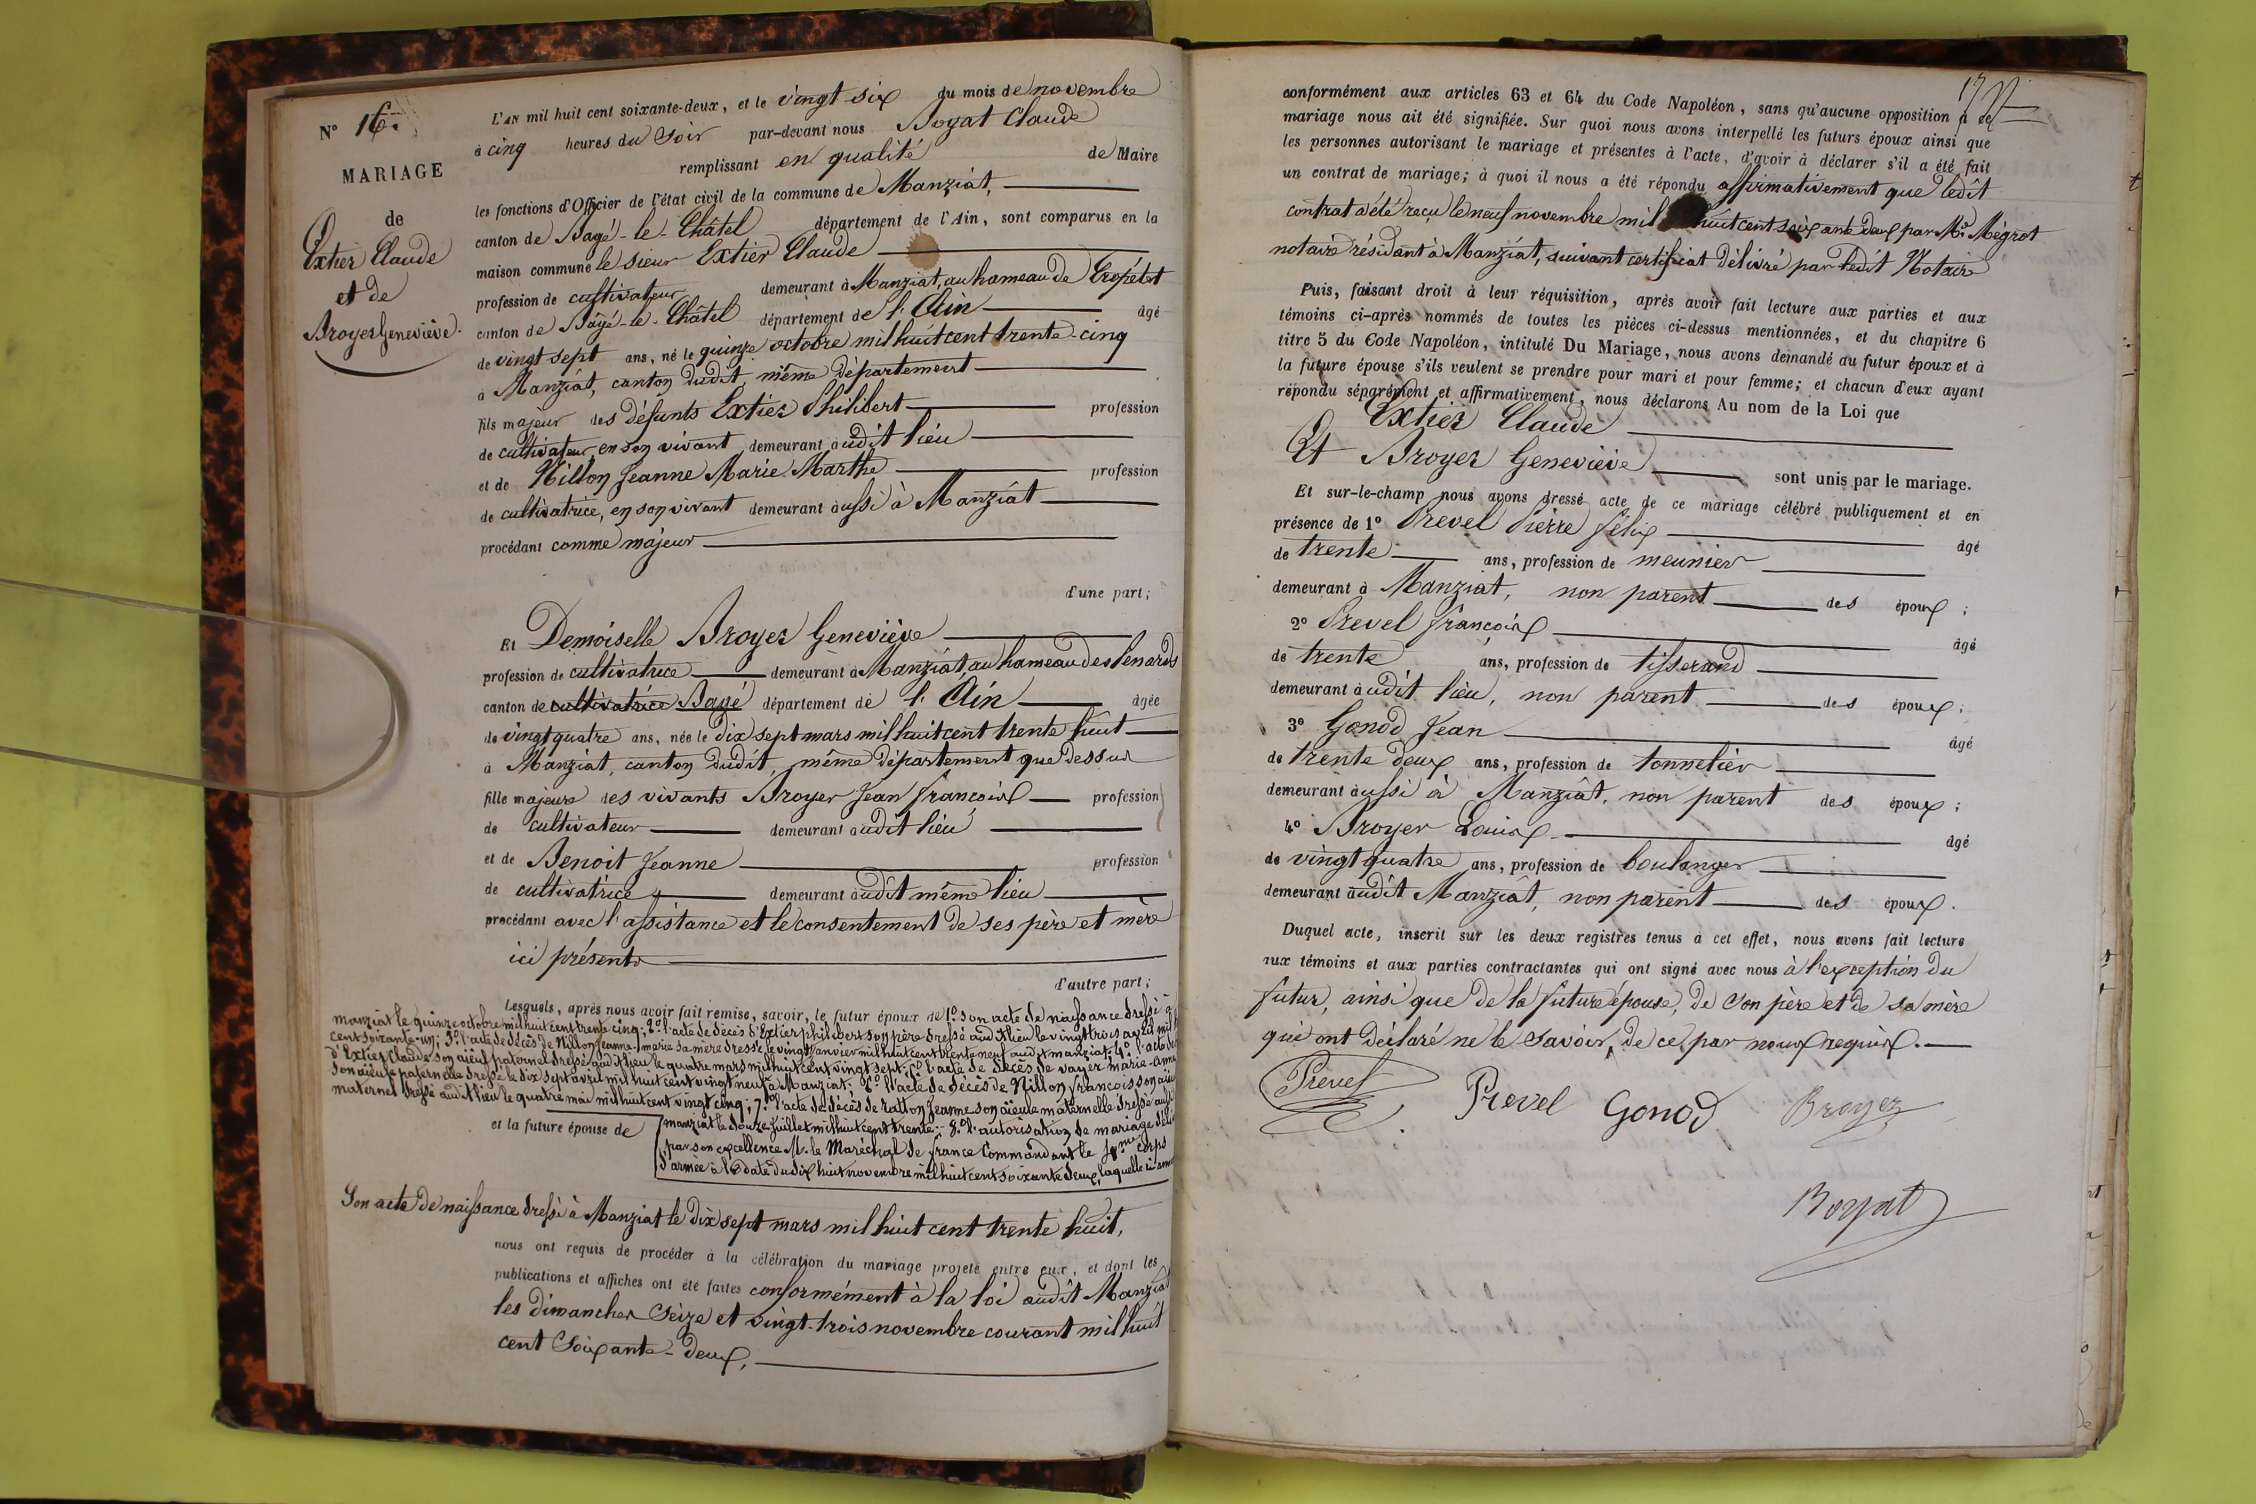 N° 16.
MARIAGE
de
Extier Claude
et de
Broyer Geneviève.
L'AN mil huit cent soixante-deux, et le vingt six du mois de novembre
à cinq heures du soir par-devant nous Boyat Claude
remplissant en qualité de Maire
les fonctions d'Officier de l'état civil de la commune de Manziat,
canton de Bagé-le-Châtel département de l'Ain, sont comparus en la
maison commune le sieur Extier Claude
profession de cultivateur demeurant à Manziat, au hameau de Cropétet
canton de Bâgé-le-Châtel département de l'Ain âgé
de vingt sept ans, né le quinze octobre mil huit cent trente-cinq
à Manziat, canton dudit, même département
fils majeur des défunts Extier Philibert profession
de cultivateur, en son vivant demeurant audit lieu
et de Nillon Jeanne Marie Marthe profession
de cultivatrice, en son vivant demeurant aussi à Manziat
procédant comme majeur
d'une part;
Et Demoiselle Broyer Geneviève
profession de cultivatrice demeurant à Manziat, au hameau des Penards
canton de cultivatrice Bagé département de l'Ain âgée
de vingt quatre ans, née le dix sept mars mil huit cent trente huit
à Manziat, canton dudit, même département que dessus
fille majeure des vivants Broyer Jean François profession
de cultivateur demeurant audit lieu
et de Benoit Jeanne profession
de cultivatrice demeurant audit même lieu
procédant avec l'assistance et le consentement de ses père et mère
ici présents
d'autre part;
Lesquels, après nous avoir fait remise, savoir, le futur époux de 1° son acte de naissance dressé à
manziat le quinze octobre mil huit cent trente cinq; 2° l'acte de décès d'Extier philibert son père dressé audit lieu le vingt trois avril mil
cent soixante-un; 3° l'acte de décès de Nillon Jeanne-marie sa mère dressé le vingt janvier mil huit cent trente neuf audit manziat; 4° l'acte de
d'Extier Claude son aïeul paternel dressé audit lieu le quatre mars mil huit cent vingt sept; 5° l'acte de décès de vayer marie-anne
son aïeule paternelle dressé le dix sept avril mil huit cent vingt neuf à Manziat; 6° l'acte de décès de Nillon François son aïeul
maternel dressé audit lieu le quatre mai mil huit cent vingt cinq; 7° l'acte de décès de ratton Jeanne son aïeule maternelle dressé audit
manziat le douze juillet mil huit cent trente; 8° l'autorisation de mariage
par son excellence M. le Maréchal de france Commandant le corps
d'armée à la date du dix huit novembre mil huit cent soixante deux, laquelle ci
et la future épouse de
Son acte de naissance dressé à Manziat le dix sept mars mil huit cent trente huit,
nous ont requis de procéder à la célébration du mariage projeté entre eux, et dont les
publications et affiches ont été faites conformément à la loi audit Manziat
les dimanches seize et vingt-trois novembre courant mil huit
cent soixante-deux,
17
conformément aux articles 63 et 64 du Code Napoléon, sans qu'aucune opposition à ce
mariage nous ait été signifiée. Sur quoi nous avons interpellé les futurs époux ainsi que
les personnes autorisant le mariage et présentes à l'acte, d'avoir à déclarer s'il a été fait
un contrat de mariage; à quoi il nous a été répondu affirmativement que ledit
contrat a été reçu le neuf novembre mil huit cent soixante deux par Me Mégrot
notaire résidant à Manziat, suivant certificat délivré par ledit Notaire
Puis, faisant droit à leur réquisition, après avoir fait lecture aux parties et aux
témoins ci-après nommés de toutes les pièces ci-dessus mentionnées, et du chapitre 6
titre 5 du Code Napoléon, intitulé Du Mariage, nous avons demandé au futur époux et à
la future épouse s'ils veulent se prendre pour mari et pour femme; et chacun d'eux ayant
répondu séparément et affirmativement, nous déclarons Au nom de la Loi que
Extier Claude
Et Broyer Geneviève sont unis par le mariage.
Et sur-le-champ nous avons dressé acte de ce mariage célébré publiquement et en
présence de 1° Prevel Pierre Félix âgé
de trente ans, profession de meunier
demeurant à Manziat, non parent des époux;
2° Prevel François âgé
de trente ans, profession de tisserand
demeurant audit lieu, non parent des époux;
3° Gonod Jean âgé
de trente deux ans, profession de tonnelier
demeurant aussi à Manziat, non parent des époux;
4° Broyer Louis âgé
de vingt quatre ans, profession de boulanger
demeurant audit Manziat, non parent des époux.
Duquel acte, inscrit sur les deux registres tenus à cet effet, nous avons fait lecture
aux témoins et aux parties contractantes qui ont signé avec nous à l'exception du
futur, ainsi que de la future épouse, de son père et de sa mère
qui ont déclaré ne le savoir, de ce, par nous requis.
Prevel
Prevel Gonod Broyer
Boyat